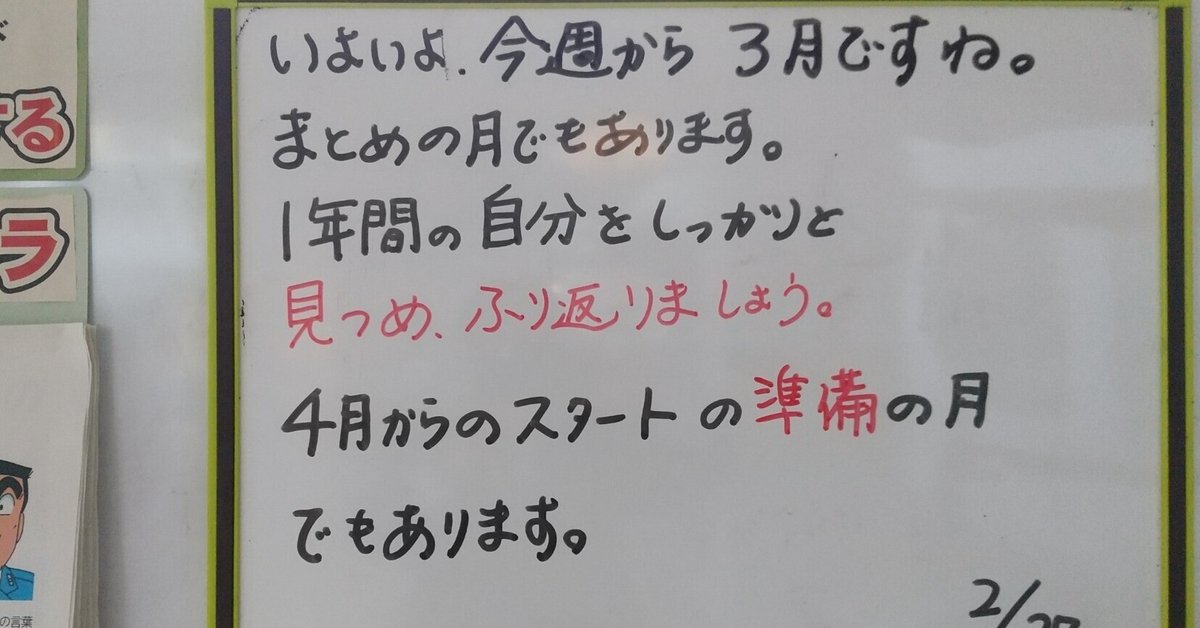 いよいよ、今週から 3月ですね。
まとめの月でもあります。
1年間の自分をしっかりと
見つめ、ふり返りましょう。
4月からのスタートの準備の月
でもあります。
2/27
る
ラ
の言葉